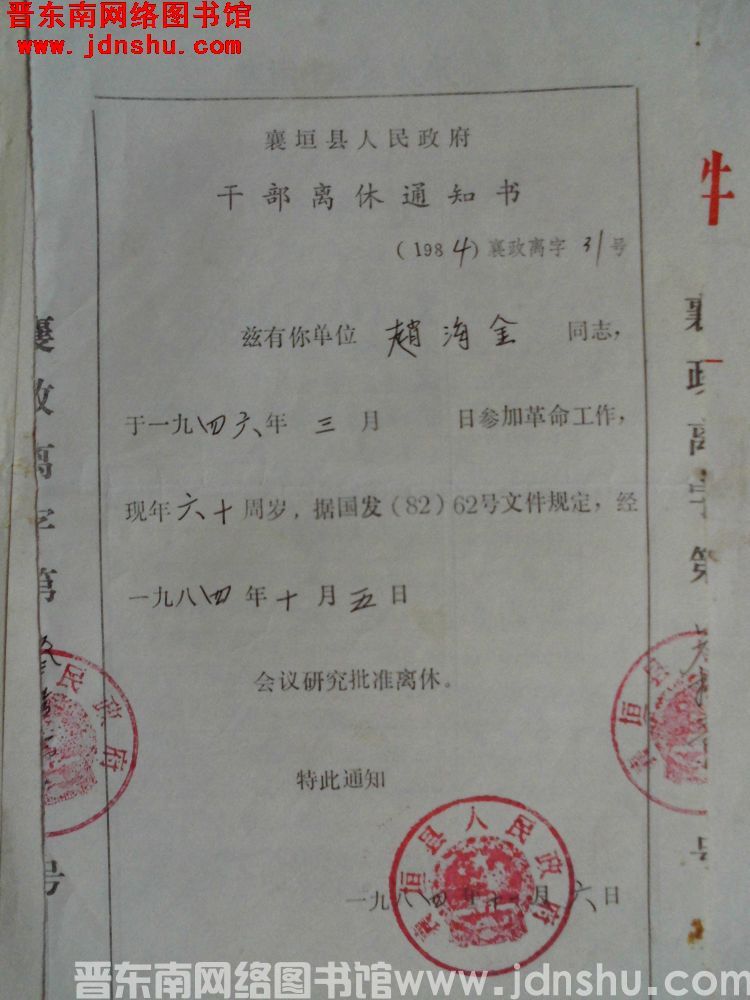 晋东南网络图书馆
www.jdnshu.com
襄垣县人民政府
干部离休通知书
(1984)襄政离字31号
兹有你单位 趙海金 同志,
于一九四六年三月 日参加革命工作,
现年六十周岁,据国发(82)62号文件规定,经
一九八四年十月五日
会议研究批准离休。
特此通知
一九八四年十一月六日
襄垣县人民政府
襄政离字第
号
民政府
襄政离字第
号
襄垣县
晋东南网络图书馆www.jdnshu.com